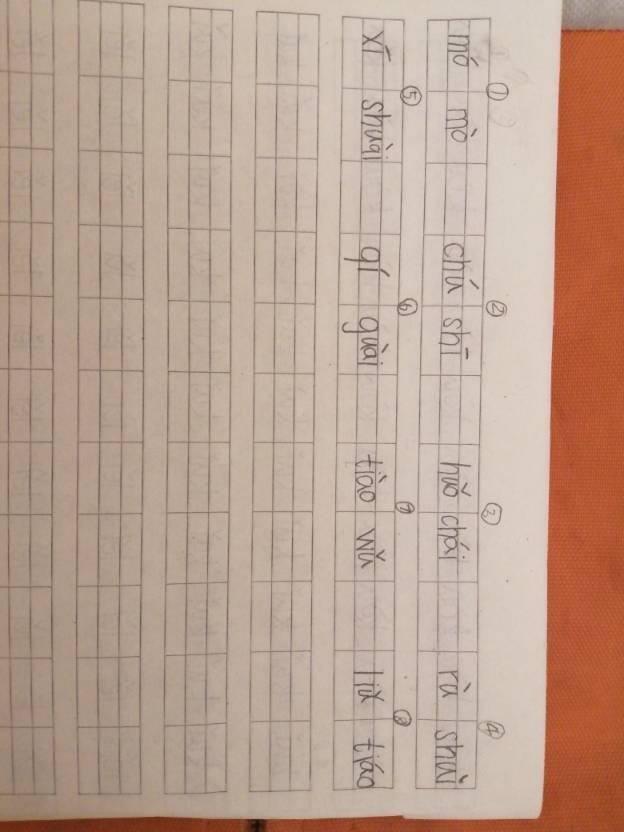 ① ② ③ ④
mó mò chú shī huǒ chái rù shuì
⑤ ⑥ ⑦ ⑧
xí shuài qí guài tiào wǔ liǔ tiáo